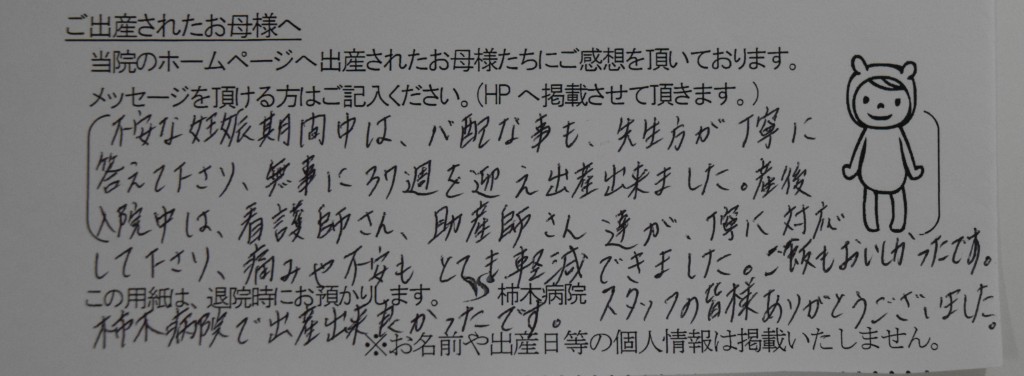 ご出産されたお母様へ
当院のホームページへ出産されたお母様たちにご感想を頂いております。
メッセージを頂ける方はご記入ください。(HPへ掲載させて頂きます。)
不安な妊娠期間中は、心配な事も、先生方が丁寧に
答えて下さり、無事に37週を迎え出産出来ました。産後
入院中は、看護師さん、助産師さん達が、丁寧に対応
して下さり、痛みや不安もとても軽減できました。ご飯もおいしかったです。
この用細は、退院時にお預かりします。 柿木病院 スタッフの皆様ありがとうございました。
柿木病院で出産出来良かったです。
※お名前や出産日等の個人情報は掲載いたしません。